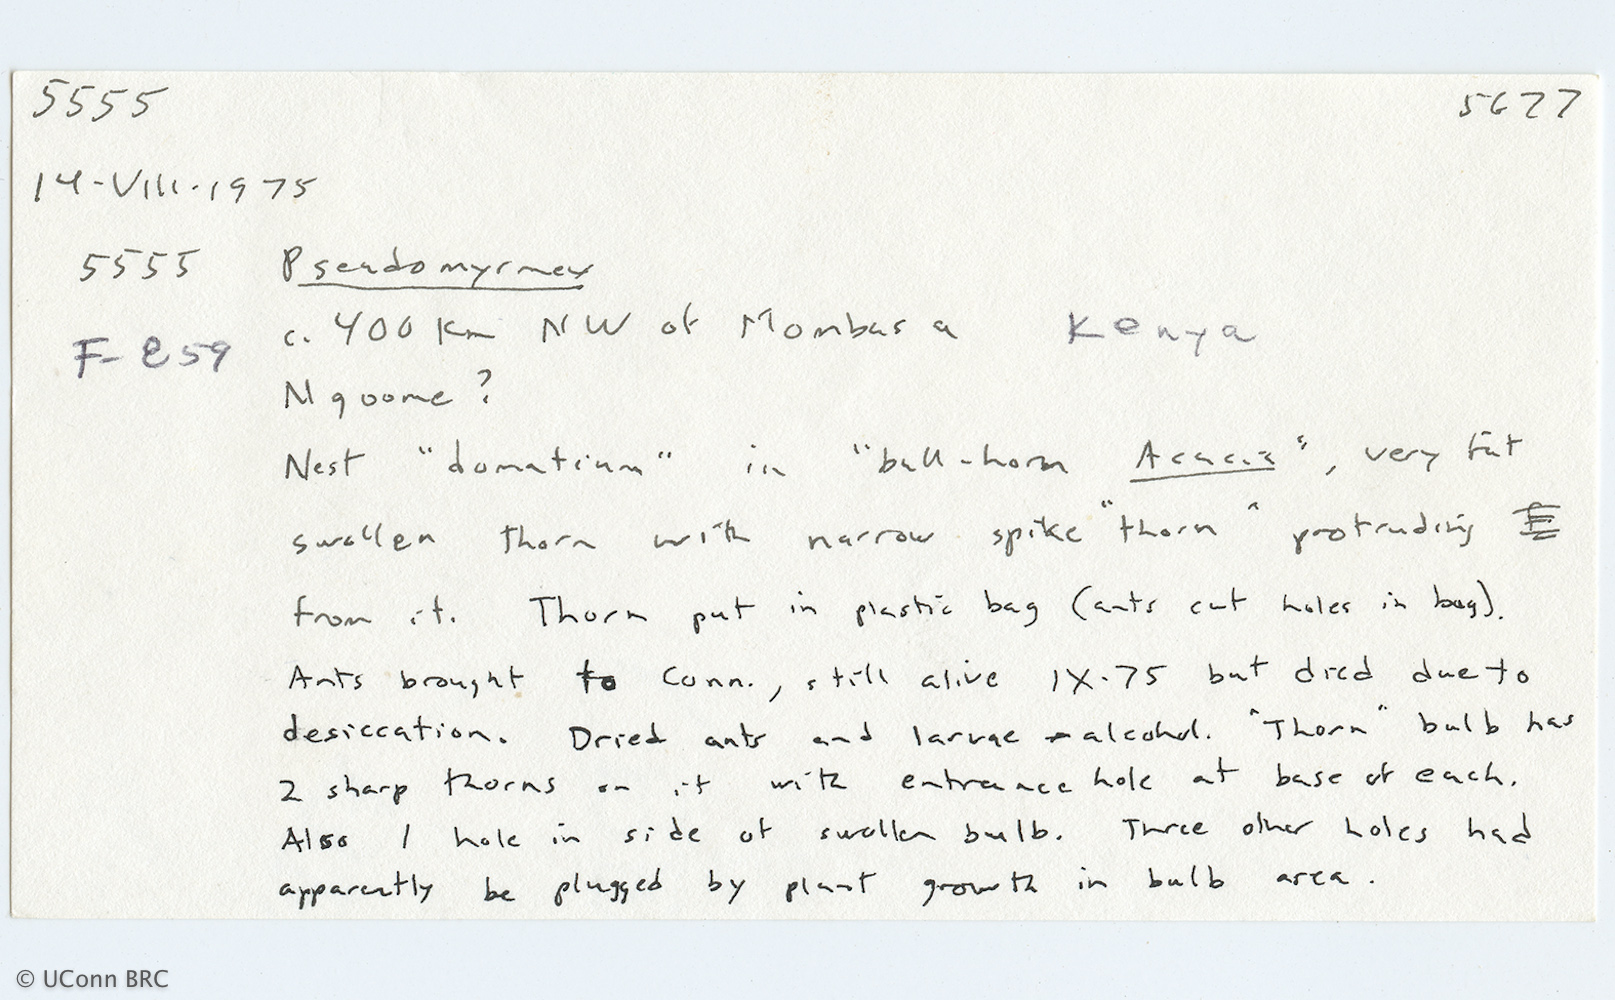 5555 5677
14-VIII-1975
5555 Pseudomyrmex
c. 400 km NW of Mombasa Kenya
F-859
Ngoome?
Nest "domatium" in "bull-horn Acacia", very fat
swollen thorn with narrow spike "thorn" protruding
from it. Thorn put in plastic bag (ants cut holes in bag).
Ants brought to Conn., still alive IX-75 but died due to
desiccation. Dried ants and larvae - alcohol. "Thorn" bulb has
2 sharp thorns on it with entrance hole at base of each.
Also 1 hole in side of swollen bulb. Three other holes had
apparently be plugged by plant growth in bulb area.
© UConn BRC